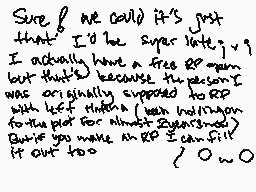 Sure! we could it's just
that I'd be super late ;v;
I actually have a free RP open
but that's because the person I
was originally supposed to RP
with left (been holding on
to the plot for almost 2 years now)
But if you make an RP I can fill
it out too
! OwO